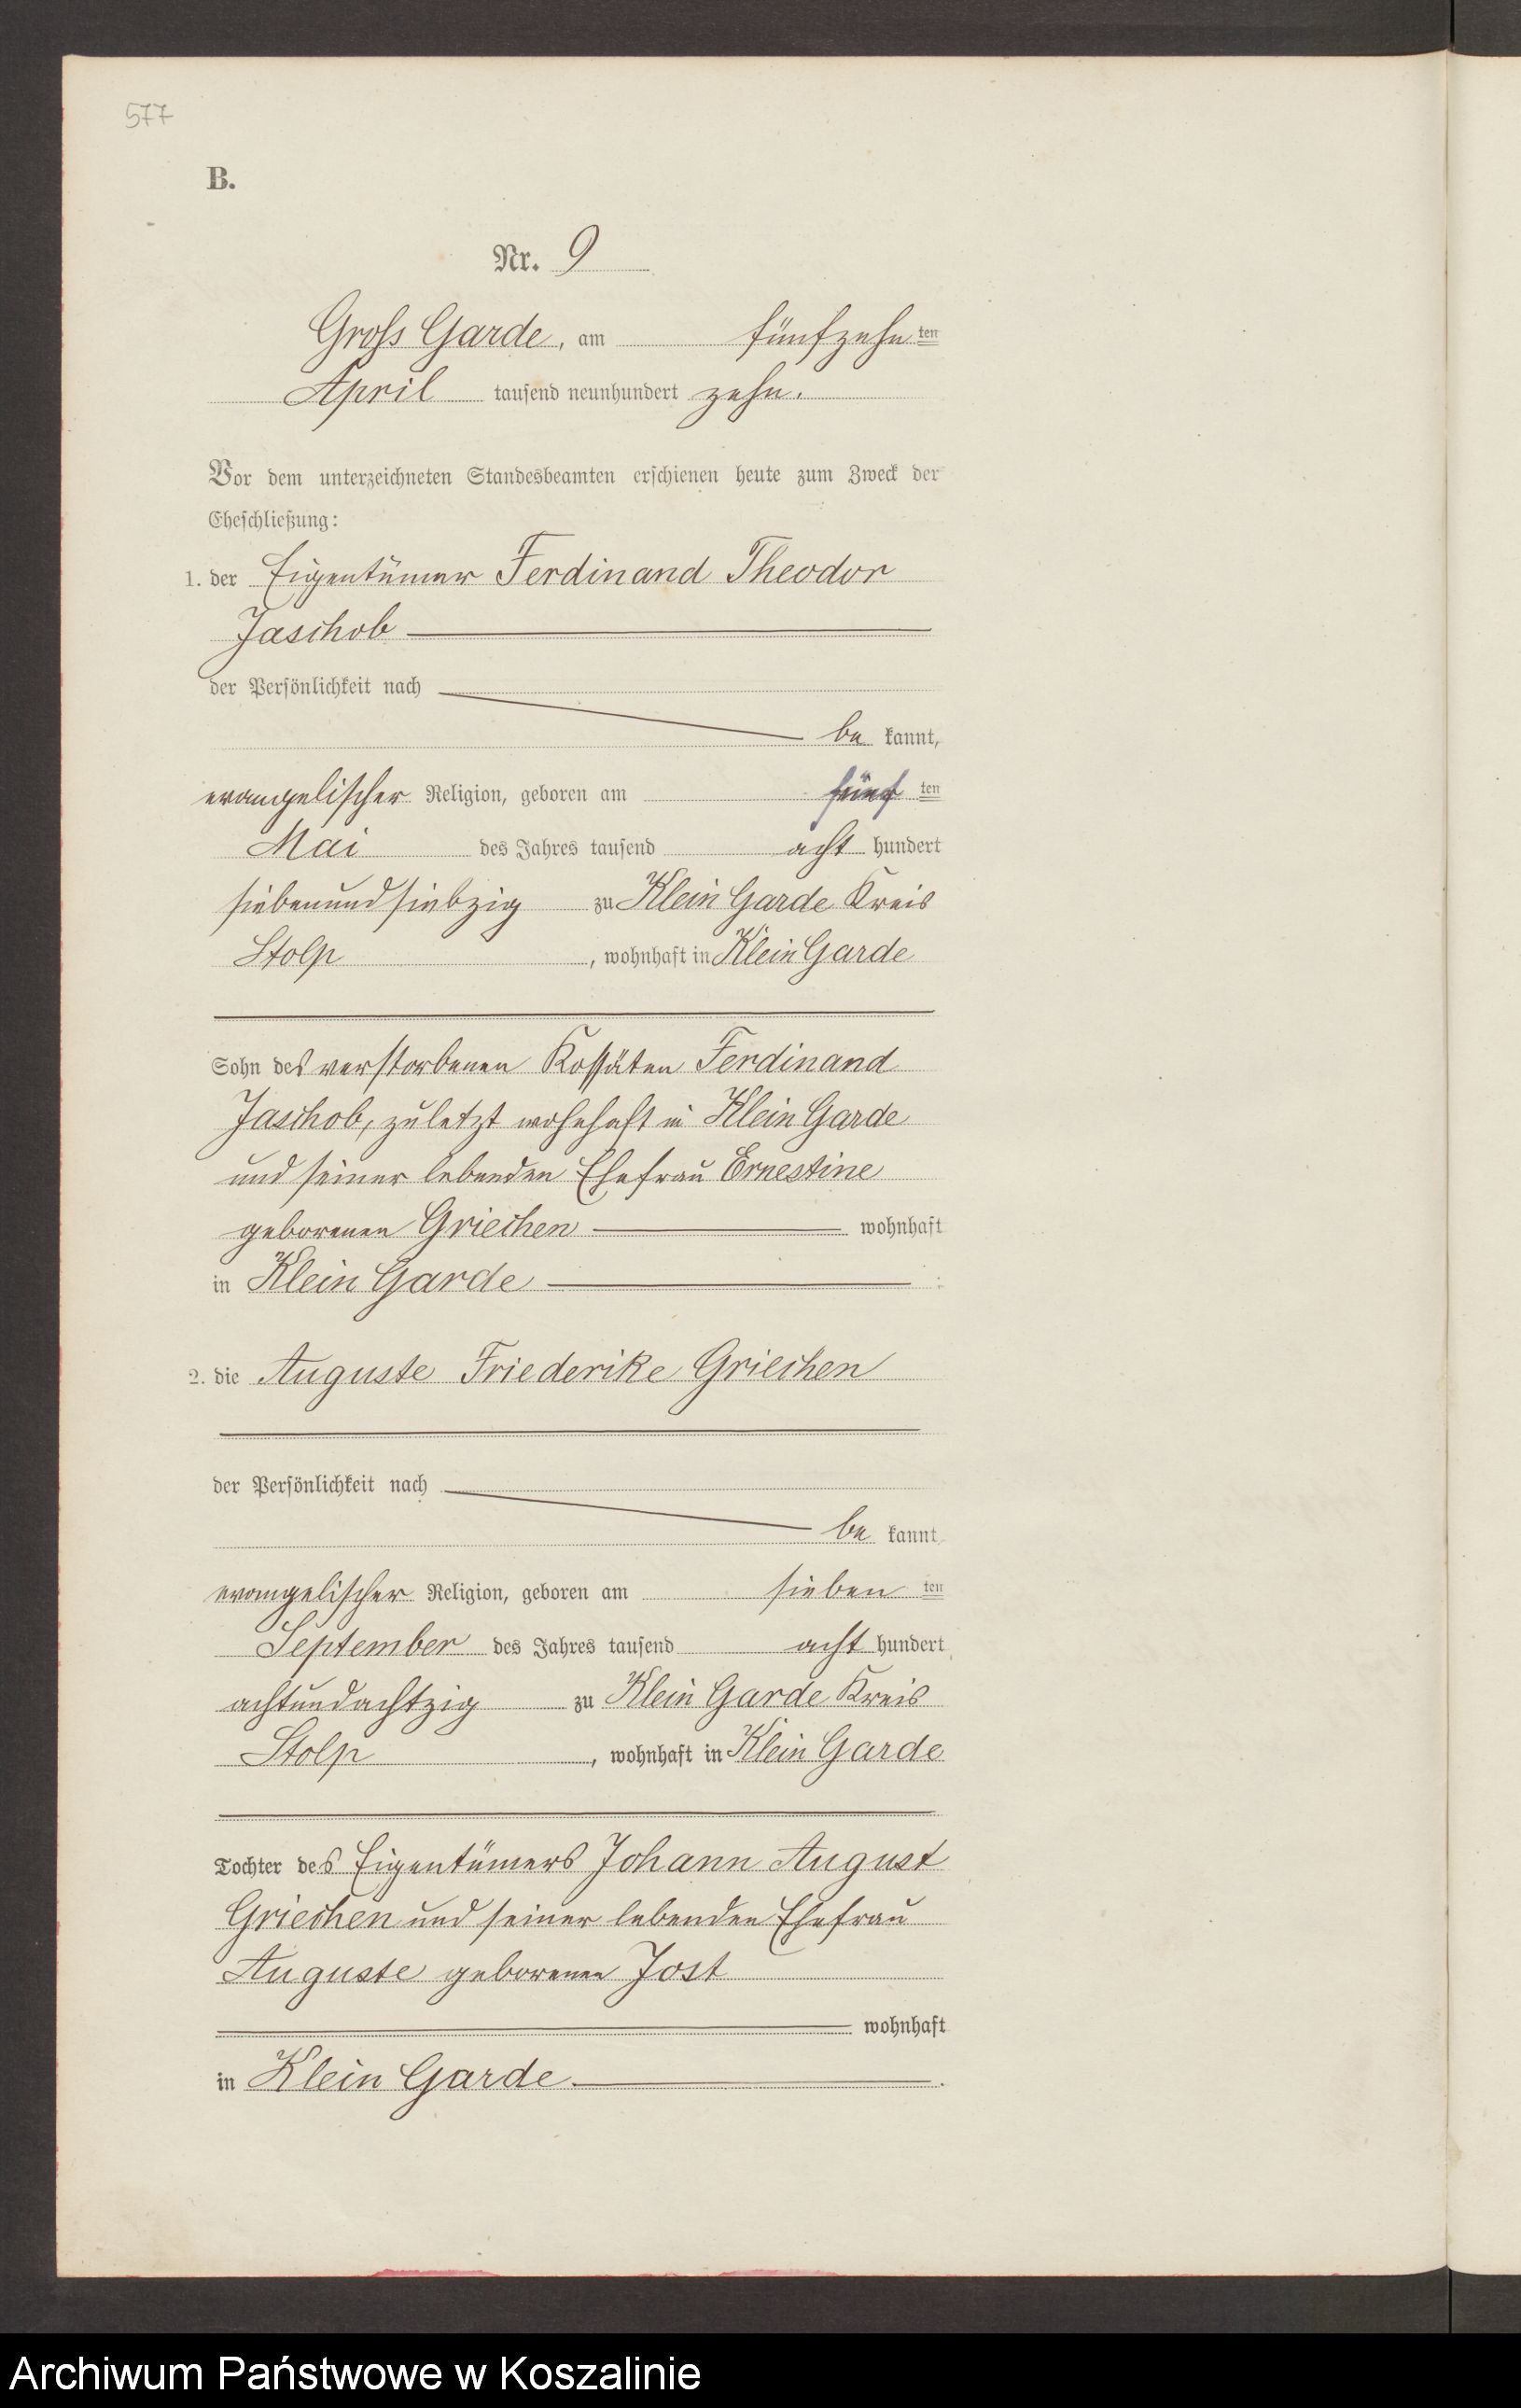 577
B.
Nr. 9
Gross Garde, am fünfzehn ten
April tausend neunhundert zehn.
Vor dem unterzeichneten Standesbeamten erschienen heute zum Zweck der
Eheschließung:
1. der Eigentümer Ferdinand Theodor
Jaschob
der Persönlichkeit nach
be kannt,
evangelischer Religion, geboren am fünf ten
Mai des Jahres tausend acht hundert
siebenundsiebzig zu Klein Garde Kreis
Stolp, wohnhaft in Klein Garde
Sohn des verstorbenen Kossäten Ferdinand
Jaschob, zuletzt wohnhaft in Klein Garde
und seiner lebenden Ehefrau Ernestine
geborenen Griechen wohnhaft
in Klein Garde
2. die Auguste Friederike Griechen
der Persönlichkeit nach
be kannt,
evangelischer Religion, geboren am sieben ten
September des Jahres tausend acht hundert
achtundachtzig zu Klein Garde Kreis
Stolp, wohnhaft in Klein Garde
Tochter des Eigentümers Johann August
Griechen und seiner lebenden Ehefrau
Auguste geborenen Jost
wohnhaft
in Klein Garde.
Archiwum Państwowe w Koszalinie